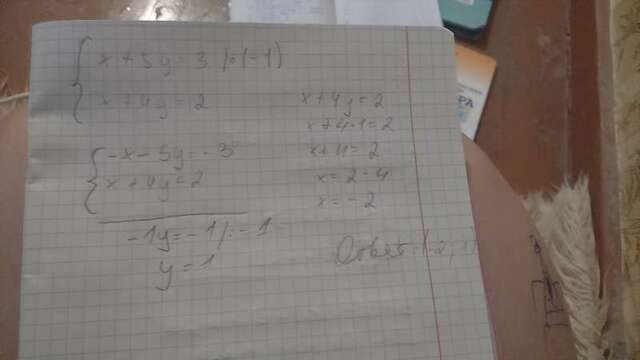 x + 5y = 3 |·(-1)
x + 4y = 2
-x - 5y = -3
x + 4y = 2
-1y = -1 |:-1
y = 1
x + 4y = 2
x + 4·1 = 2
x + 4 = 2
x = 2 - 4
x = -2
Ответ: (-2; 1)
РА